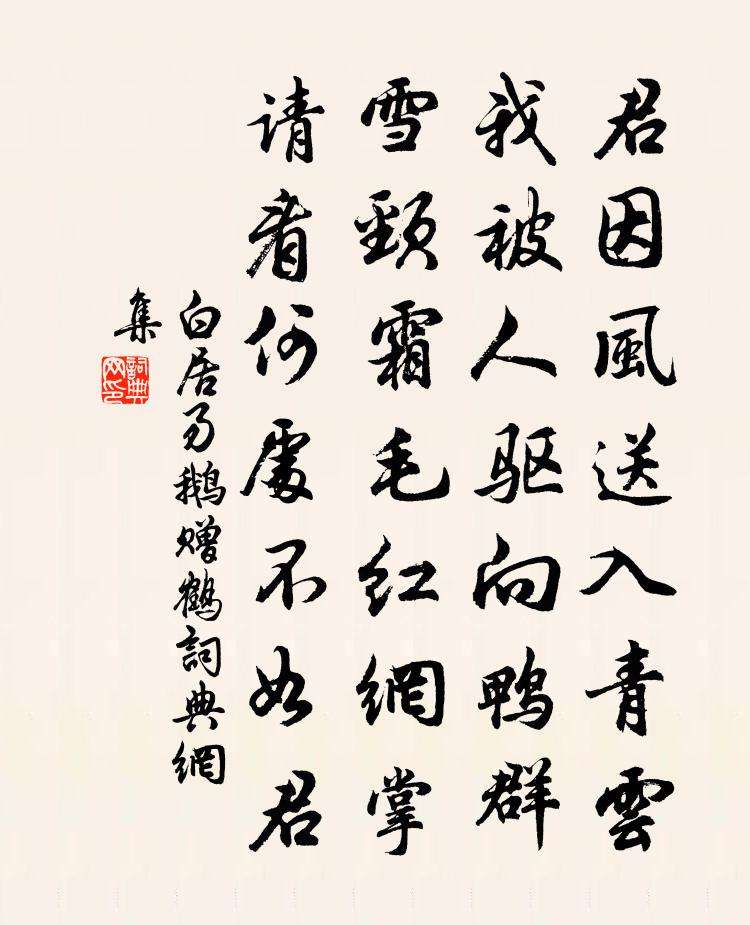 君因風送入青雲
我被人驱向鸭群
雪頸霜毛红網掌
请看何處不如君
白居易鵝赠鶴詞典網
集
詞典網印